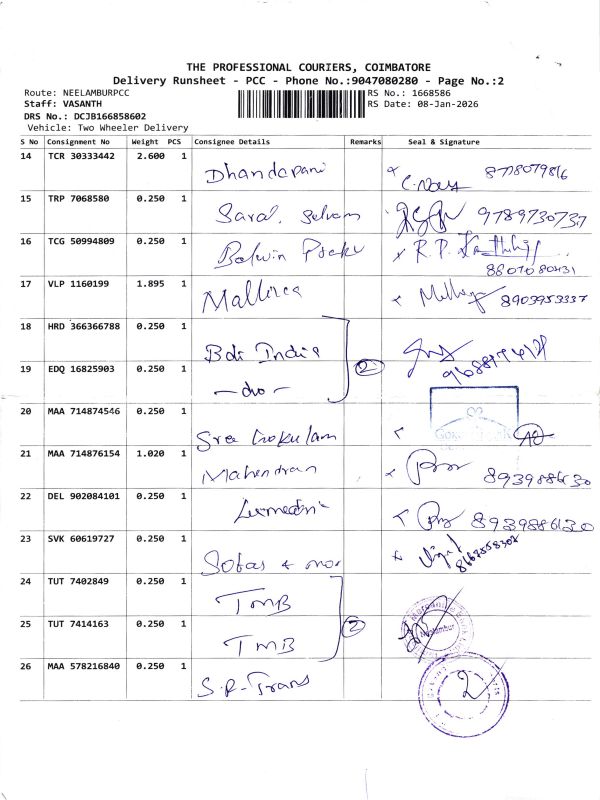 THE PROFESSIONAL COURIERS, COIMBATORE
Delivery Runsheet - PCC - Phone No.:9047080280 - Page No.:2
Route: NEELAMBURPCC RS No.: 1668586
Staff: VASANTH RS Date: 08-Jan-2026
DRS No.: DCJB166858602
Vehicle: Two Wheeler Delivery
S No Consignment No Weight PCS Consignee Details Remarks Seal & Signature
14 TCR 30333442 2.600 1 Dhandapani
15 TRP 7068580 0.250 1 Saral. Selvam 9789730737
16 TCG 50994809 0.250 1
17 VLP 1160199 1.895 1 Mallika 8903953337
18 HRD 366366788 0.250 1 Bdi India
19 EDQ 16825903 0.250 1 -do- 2
20 MAA 714874546 0.250 1 Sree Gokulam
21 MAA 714876154 1.020 1 Mahendran 8939886130
22 DEL 902084101 0.250 1 8939886130
23 SVK 60619727 0.250 1 Sofas & mor
24 TUT 7402849 0.250 1 TMB
25 TUT 7414163 0.250 1 TMB 2
26 MAA 578216840 0.250 1 S.R-Trans